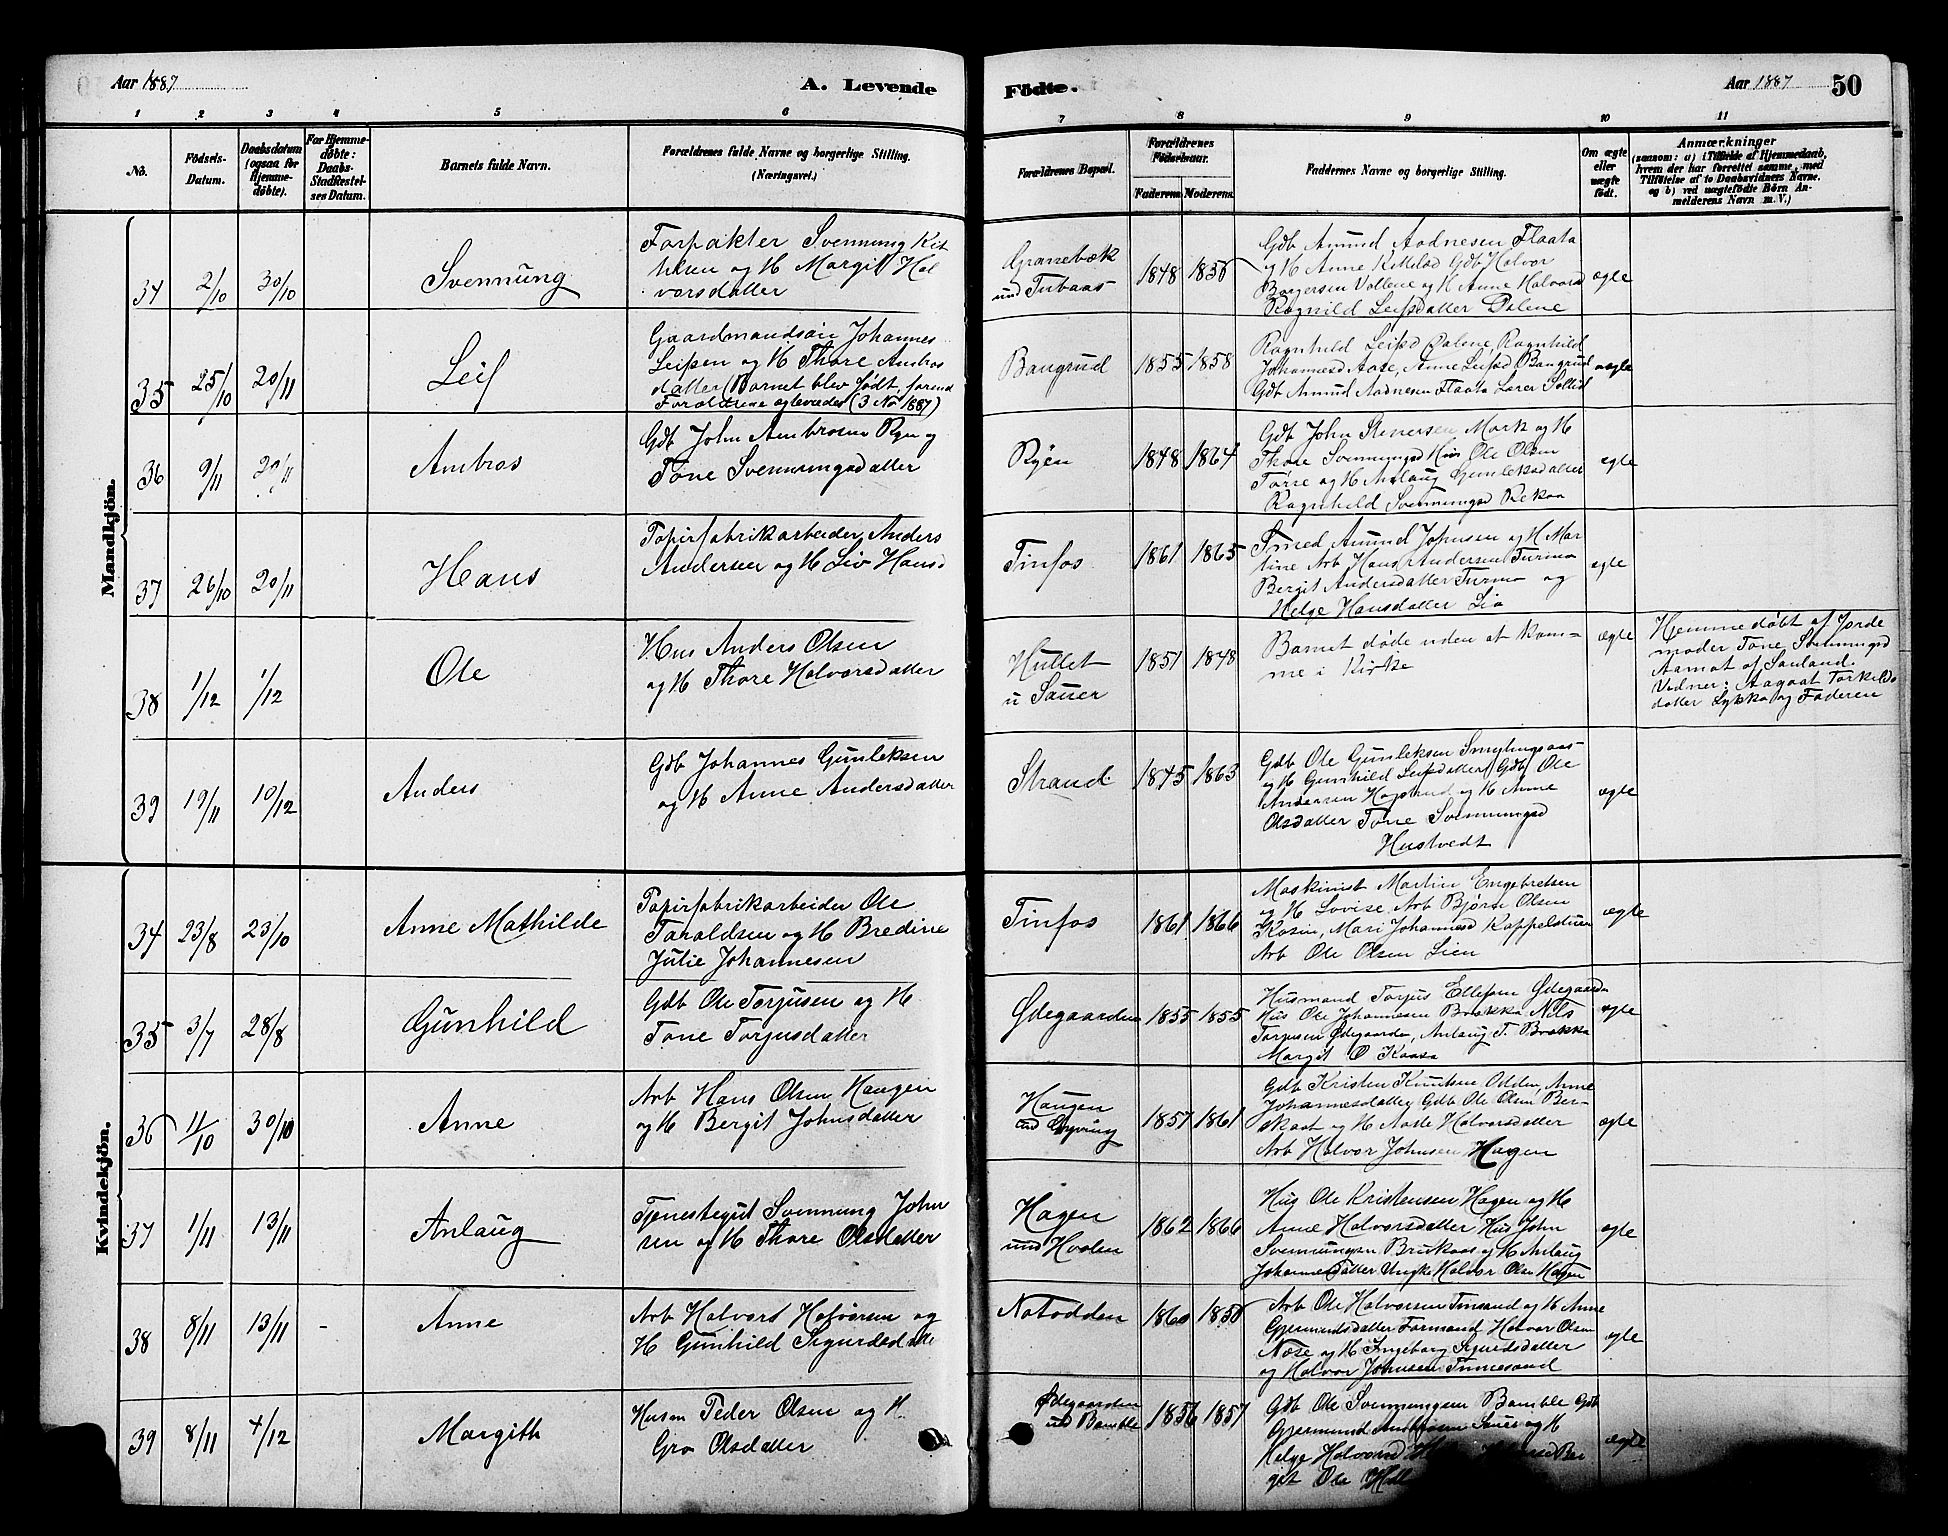 Aar 1887 A. Levende
Fødte. Aar 1887 50
1 2 3 4 5 6
7 8 9 10 11
No.
Fødsels-
Datum.
Daabsdatum
(ogsaa for
Hjemme-
døbte).
For Hjemme-
døbte:
Daabs-
Stadfæstel-
ses Datum.
Barnets fulde Navn.
Forældrenes fulde Navne og borgerlige Stilling.
(Næringsvei.)
Forældrenes Bopæl.
Forældrenes
Fødselsaar.
Faderens Moderens
Faddernes Navne og borgerlige Stilling.
Om ægte
eller
uægte
født.
Anmærkninger
(saasom: a) i Tilfælde af Hjemmedaab,
hvem der har forrettet samme, med
Tilføielse af to Daabsvidners Navne,
og b) ved uægtefødte Børn An-
melderens Navn m. V.)
Mandkjøn.
34 2/10 30/10 Svennung
Forpakter Svennung Kit
tilsen og H Margit Hal
vorsdatter
Granebæk
und Tubaas
1848 1856
Gdb Amund Aadnesen Flaata
og H Anne Kittilsd Gdb Halvor
Borgersen Vallene og H Anne Halvorsd
Ragnild Leifsdatter Dalene
ægte
35 25/10 20/11 Leif
Gaardmandsøn Johannes
Leifsen og H Thore Ambros
datter (Barnet blev født, førend
Forældrene egteviedes (3 No 1887)
Bangrud
1855 1858
Ragnhild Leifsd Dalene Ragnhild
Johannesd Aase, Anne Leifsd Bangrud
Gdb Amund Aadnesen Flaata Lærer Solli
uægte
36 9/11 20/11 Ambros
Gdb John Ambrosen Ryen og
Tone Svennungsdatter
Ryen
1848 1864
Gdb John Stenersen Mark og H
Thore Svennungsd Hus Ole Olsen
Tørre og H Anlaug Gunleksdatter
Ragnhild Svennungsd Rekaa
egte
37 26/10 20/11 Hans
Papirfabrikarbeider Anders
Andersen og H Liv Hansd
Tinfos
1861 1865
Smed Amund Johnsen og H Mar
tine Arb Hans Andersen Turmo
Bergit Andersdatter Turmo og
Helge Hansdatter Lia
egte
38 1/12 1/12 Ole
Hus Anders Olsen
og H Thore Halvorsdatter
Hullet
u Sauer
1851 1848
Barnet døde uden at kom-
me i Kirke
ægte
Hjemmedøbt af Jorde
moder Tone Svennungsd
Aamot af Sauland.
Vidner: Aagaat Torkilds
datter Lykka og Faderen
39 19/11 10/12 Anders
Gdb Johannes Gunleksen
og H Anne Andersdatter
Strand
1845 1863
Gdb Ole Gunleksen Smylingsaas
og H Gunhild Leifsdatter Gdb Ole
Andersen Høgstrud og H Anne
Olsdatter Tone Svennungsd
Hustvedt
ægte
Kvindekjøn.
34 23/8 23/10 Anne Mathilde
Papirfabrikarbeider Ole
Taraldsen og H Bredine
Julie Johannesen
Tinfos
1861 1866
Maskinist Martin Engebretsen
og H Lovise, Arb Bjørn Olsen
Kasin, Mari Johannesd Kappelsturen
Arb Ole Olsen Lien
ægte
35 3/7 28/8 Gunhild
Gdb Ole Torjusen og H
Tone Torjusdatter
Ødegaarden
1855 1855
Husmand Torjus Ellefsen Ødegaarden
Hus Ole Johannesen Brakka Nils
Torjusen Ødegaarden, Anlaug T. Brakka
Margit O Kaasa
egte
36 11/10 30/10 Anne
Arb Hans Olsen Haugen
og H Bergit Johnsdatter
Haugen
und
1857 1861
Gdb Kristen Knutsen Odden, Anne
Johannesdatter Gdb Ole Olsen Ber-
kaat og H Aaste Halvorsdatter
Arb Halvor Johnsen Hagen
ægte
37 1/11 13/11 Anlaug
Tjenestegut Svennung John
sen og H Thore Olsdatter
Hagen
und Hvalen
1862 1866
Hus Ole Kristensen Hagen og H
Anne Halvorsdatter Hus John
Svennungsen Brukaas og H Anlaug
Johannesdatter Ungk Halvor Olsen Hagen
egte
38 8/11 13/11 - Anne
Arb Halvort Halvorsen og
H Gunhild Sigurdsdatte
Notodden
1860 1850
Arb Ole Halvorsen Tinsand og H Anne
Gjermundsdatter Formand Halvor Olsen
Næse og H Ingeborg Sigurdsdatter
og Halvor Johnsen Tinnesand
egte
39 8/11 4/12 Margith
Husm Peder Olsen og H.
Gro Olsdatter
Ødegaarden
und Bamble
1856 1857
Gdb Ole Svennungsen Bamble Gdb
Gjermund Andersen Sauer og H
Helge Halvorsd
git Ole
ægte